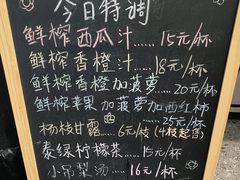 今日特调
鲜榨西瓜汁......15元/杯
鲜榨香橙汁......18元/杯
鲜榨香橙加菠萝
......20元/杯
鲜榨苹果加菠萝加西红柿
......25元/杯
杨枝甘露......6元/枝(4枝起售)
泰绿柠檬茶......15元/杯
小吊梨汤......16元/杯